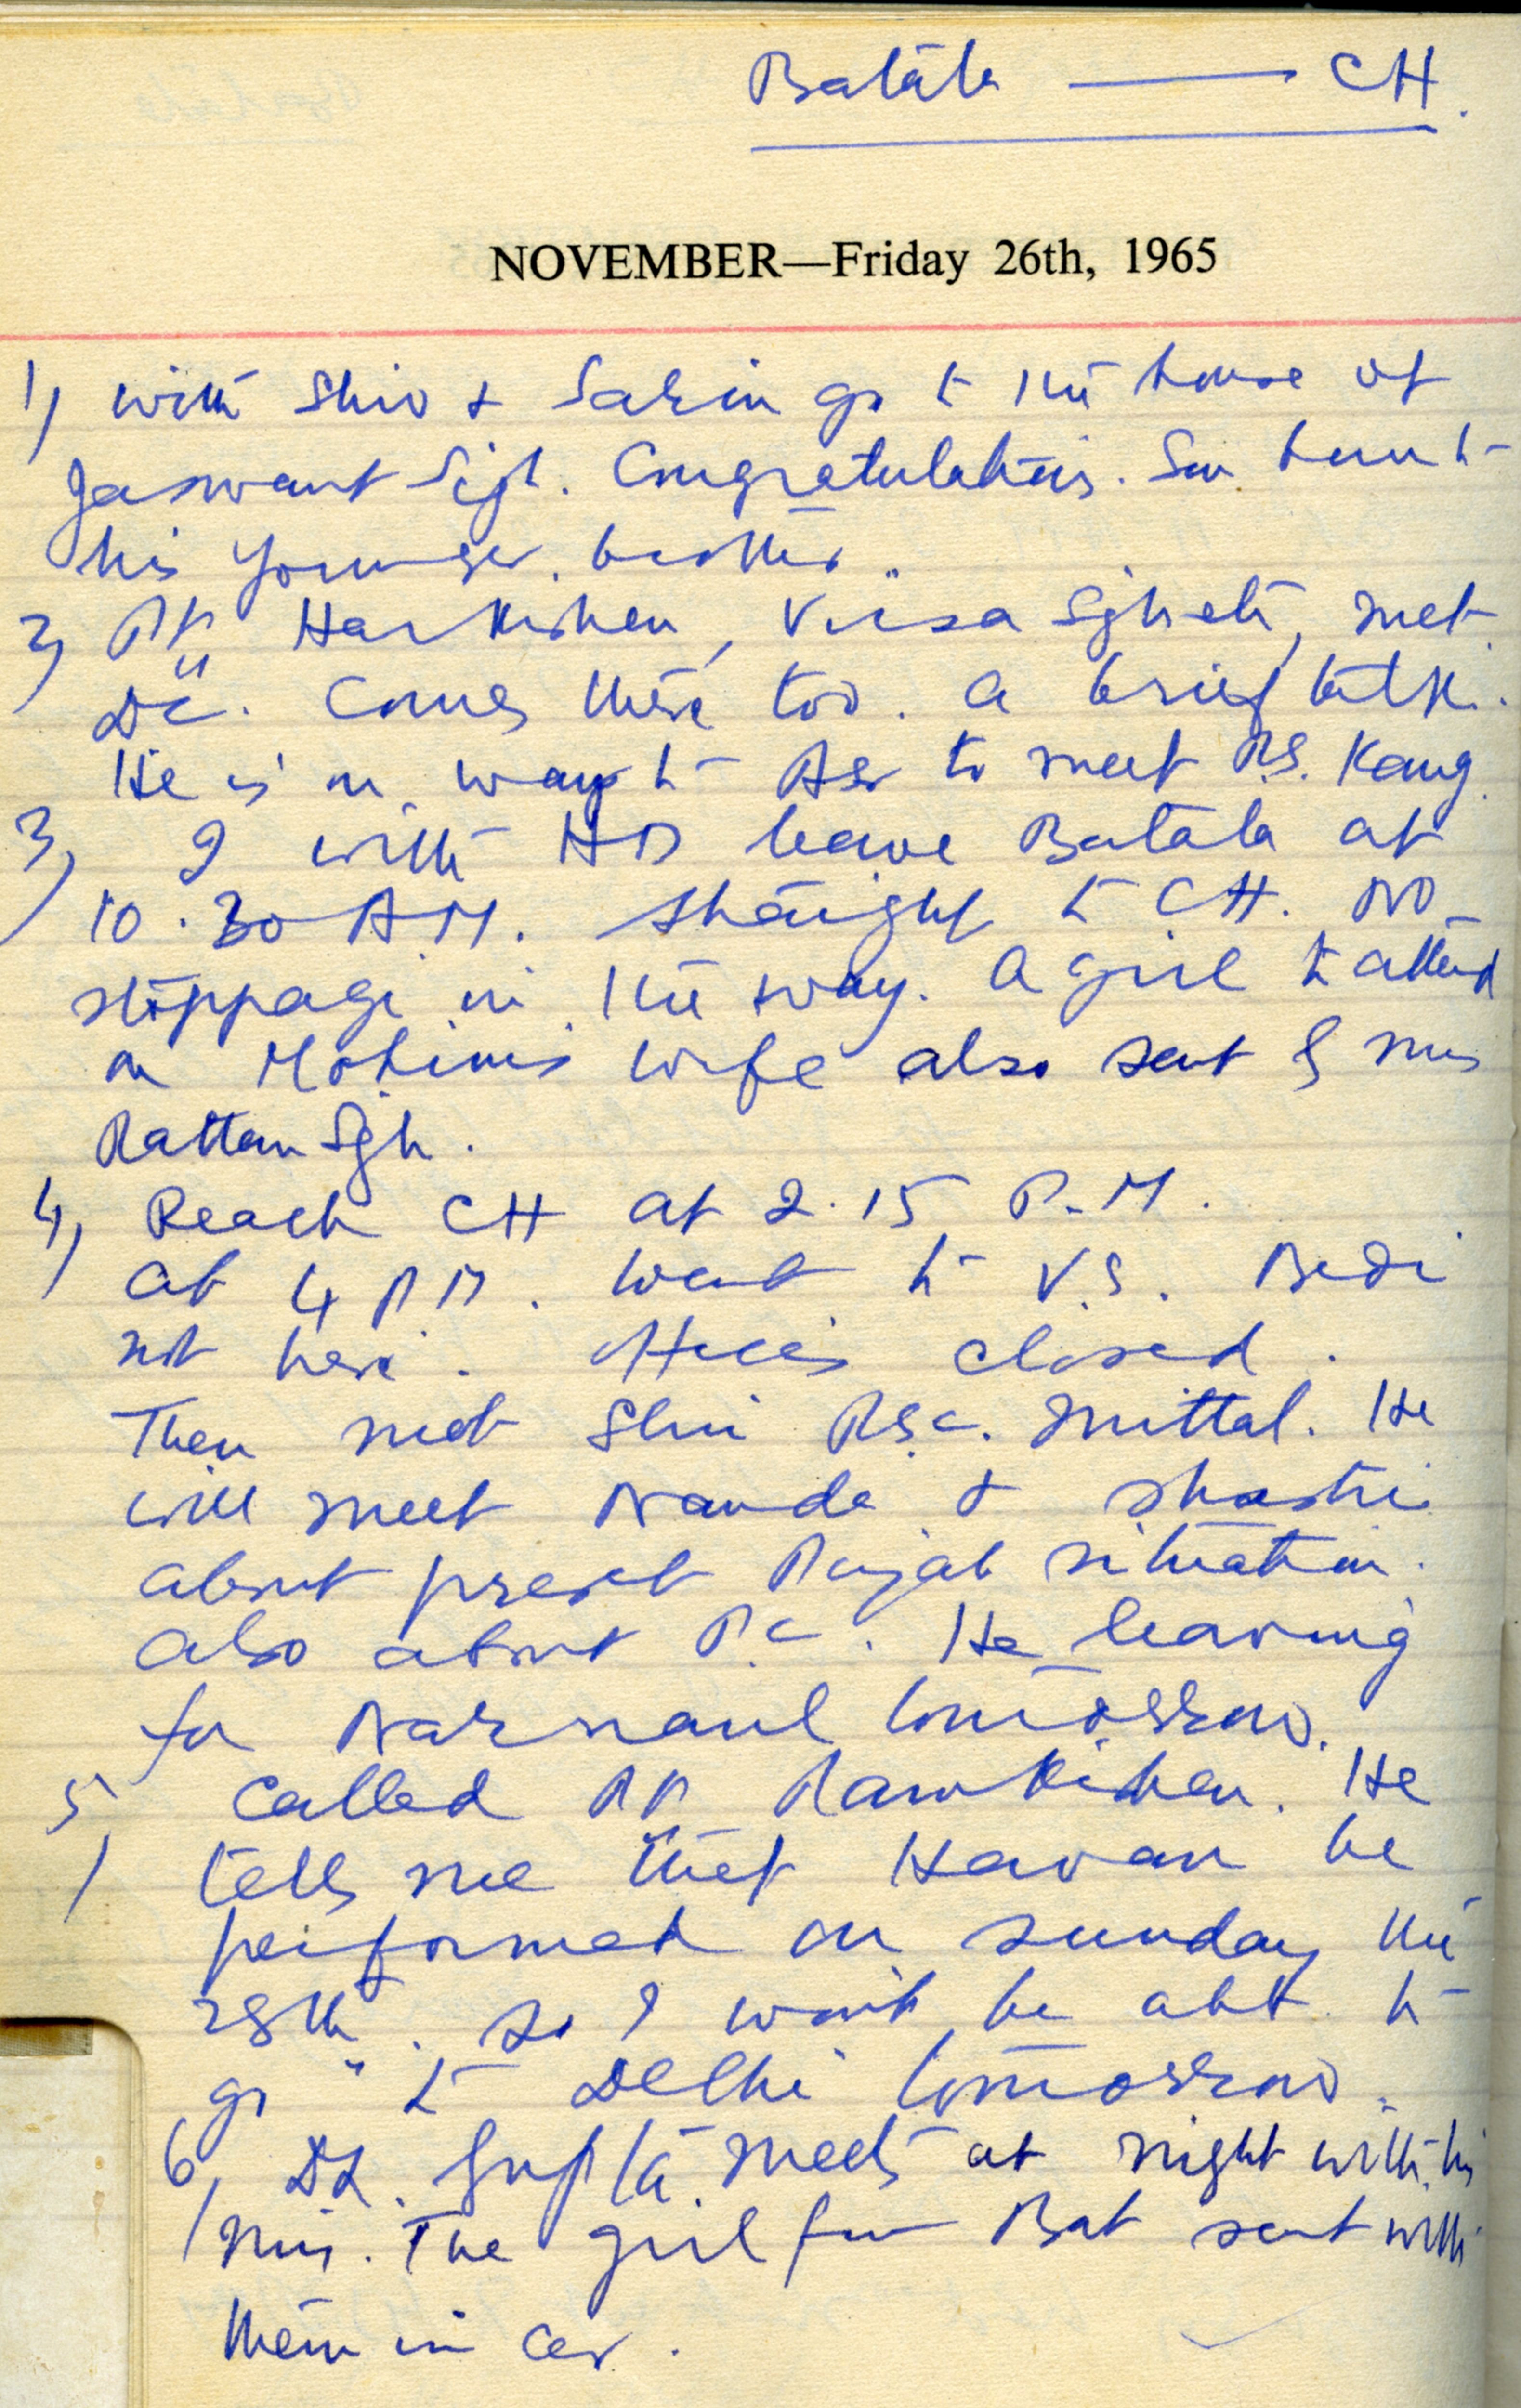 Batala — CH.
NOVEMBER—Friday 26th, 1965
1) With Shiv & Sarin go to the house of
Jaswant Sigh. Congratulations. Son born to
his younger brother.
2) Pt. Harkishen, Virsa Sgh etc, met.
DC. comes there too. a brief talk.
He is on way to Asr to meet P.S. Kang.
3) I with HD leave Batala at
10.30 AM. straight to CH. NO
stoppage in the way. A girl to attend
on Mohini's wife also sent by Mrs
Rattan Sgh.
4) Reach CH at 2.15 P.M.
at 4 P.M. went to V.S. Bedi
not here. Offices closed.
Then met Shri Mittal. He
will meet Nanda & Shastri
about present Punjab situation.
also about P.C. He leaving
for Narnaul tomorrow.
5) called Ramkishen. He
tells me that Havan be
performed on Sunday the
28th. So I won't be able to
go to Delhi tomorrow.
6) Gupta meets at night with his
Mrs. The girl from Bat sent with
them in car.